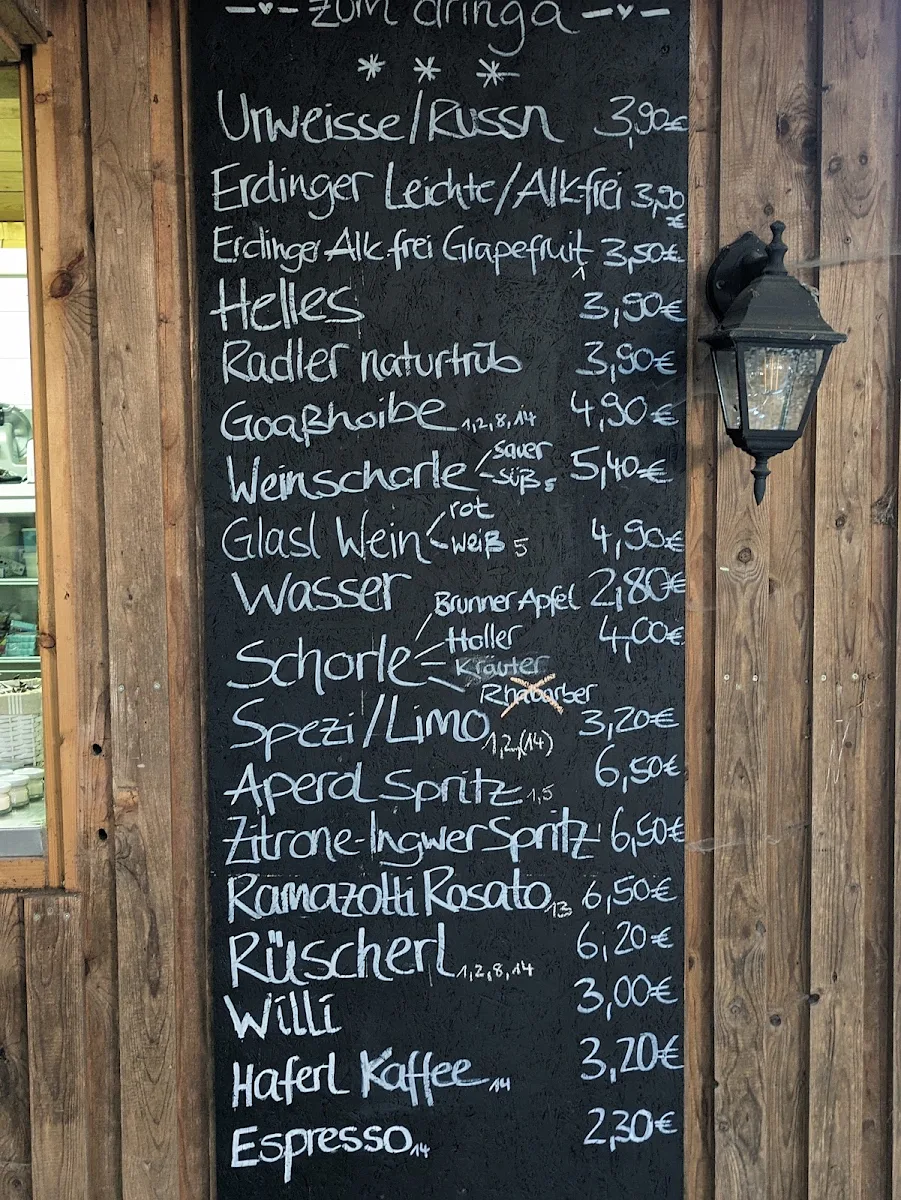 zum dringa
Urweisse/Russn 3,90€
Erdinger Leichte/Alk.frei 3,90€
Erdinger Alk.frei Grapefruit 3,50€
Helles 3,90€
Radler naturtrüb 3,90€
Goaßhoibe 1,2,8,14 4,90€
Weinschorle sauer süß 5 5,40€
Glasl Wein rot weiß 5 4,90€
Wasser 2,80€
Schorle Brunner Apfel 4,00€
Holler
Kräuter
Rhabarber
Spezi/Limo 1,2,(14) 3,20€
Aperol Spritz 1,5 6,50€
Zitrone-Ingwer Spritz 6,50€
Ramazotti Rosato 13 6,50€
Rüscherl 1,2,8,14 6,20€
Willi 3,00€
Haferl Kaffee 14 3,20€
Espresso 14 2,30€